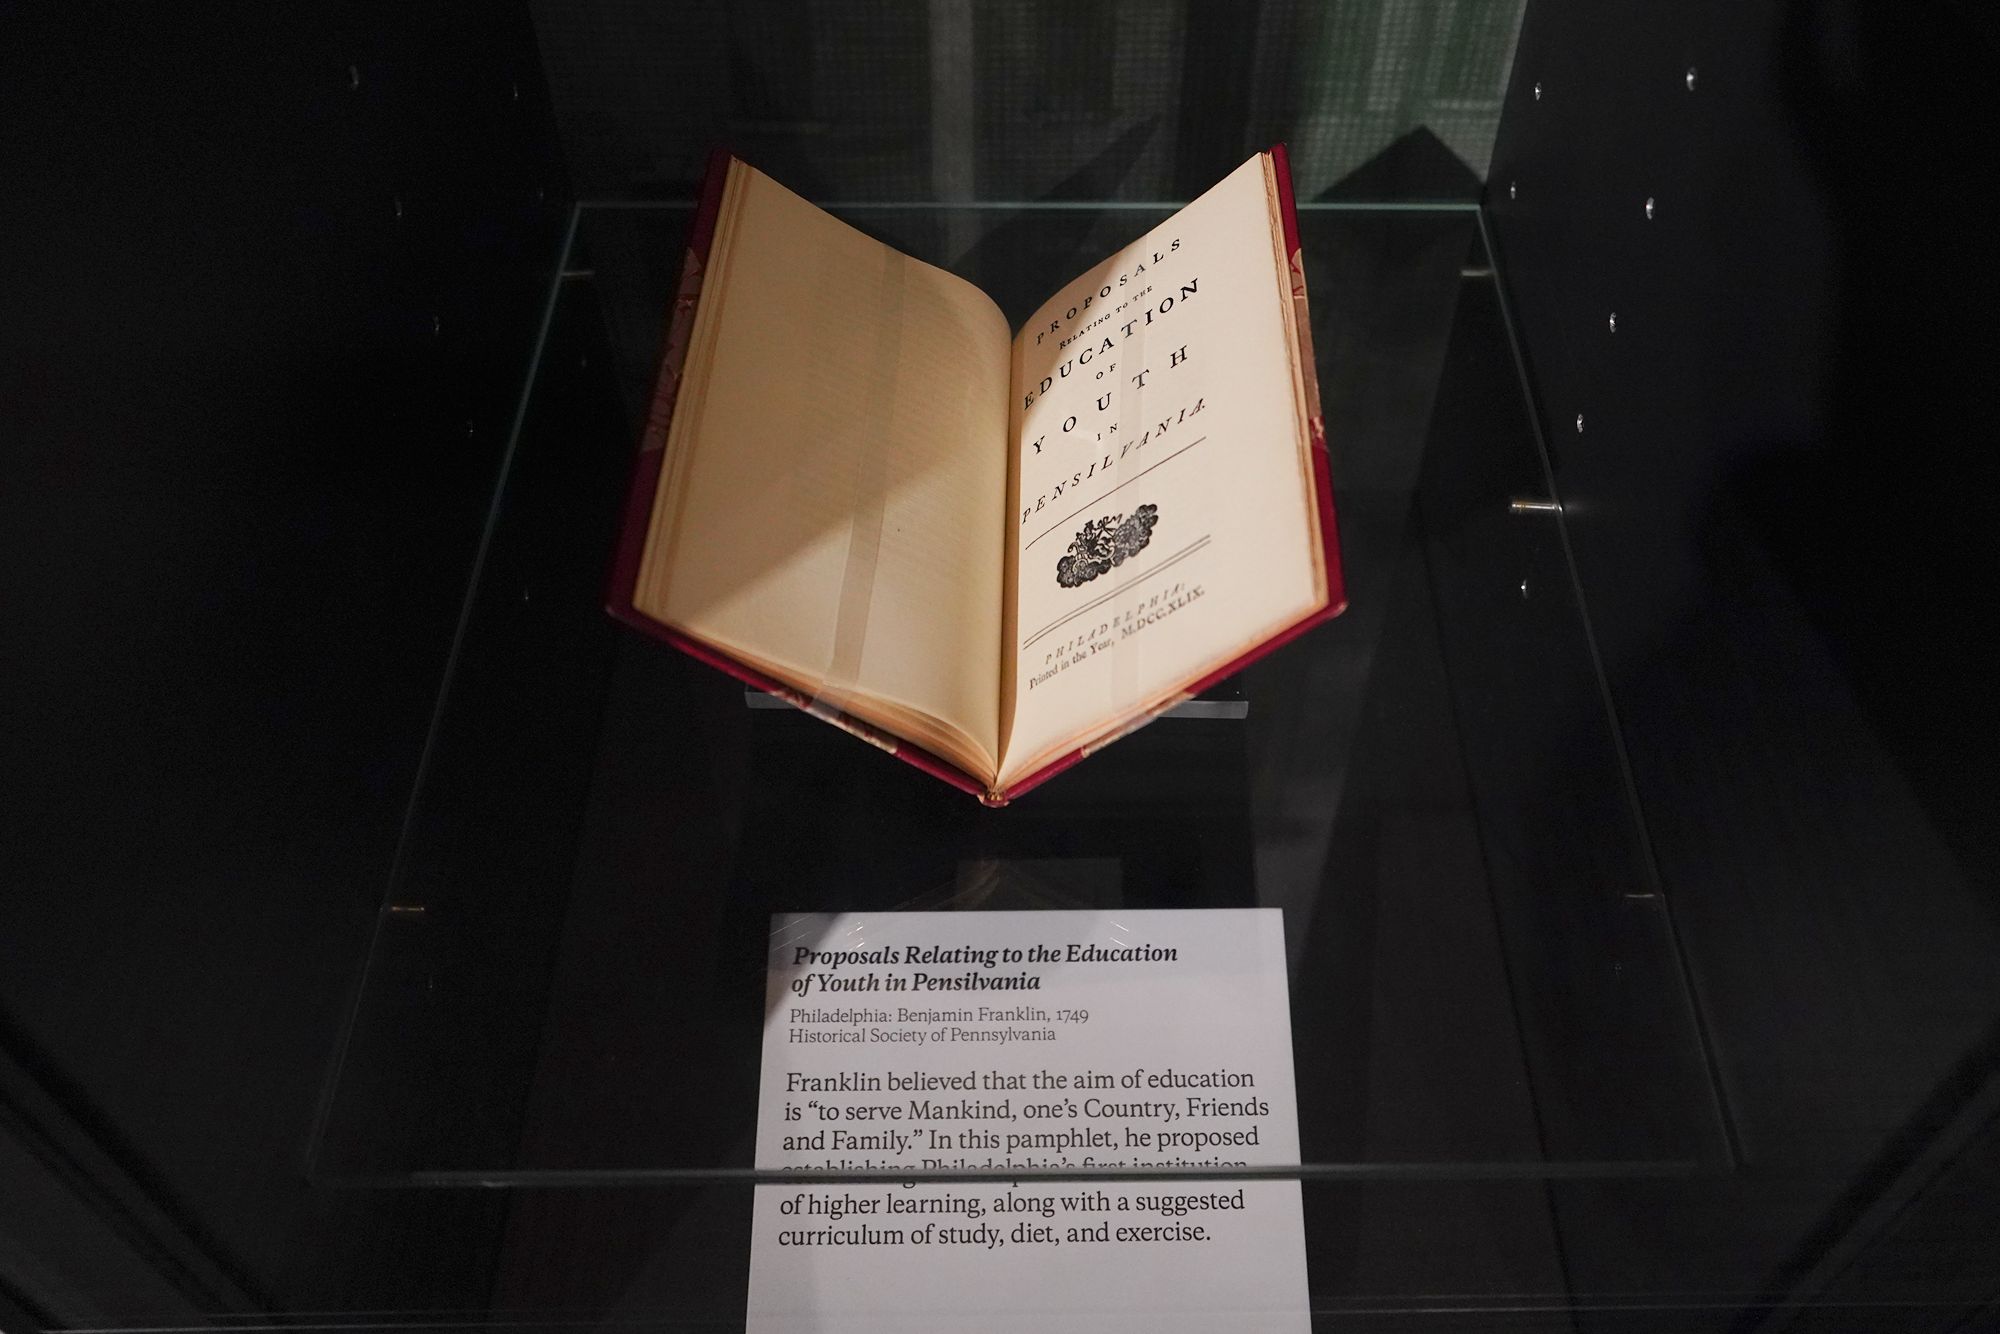 PROPOSALS
RELATING TO THE
EDUCATION
OF
YOUTH
IN
PENSILVANIA.
PHILADELPHIA:
Printed in the Year, M.DCC.XLIX.
Proposals Relating to the Education
of Youth in Pensilvania
Philadelphia: Benjamin Franklin, 1749
Historical Society of Pennsylvania
Franklin believed that the aim of education
is “to serve Mankind, one’s Country, Friends
and Family.” In this pamphlet, he proposed
establishing Philadelphia’s first institution
of higher learning, along with a suggested
curriculum of study, diet, and exercise.